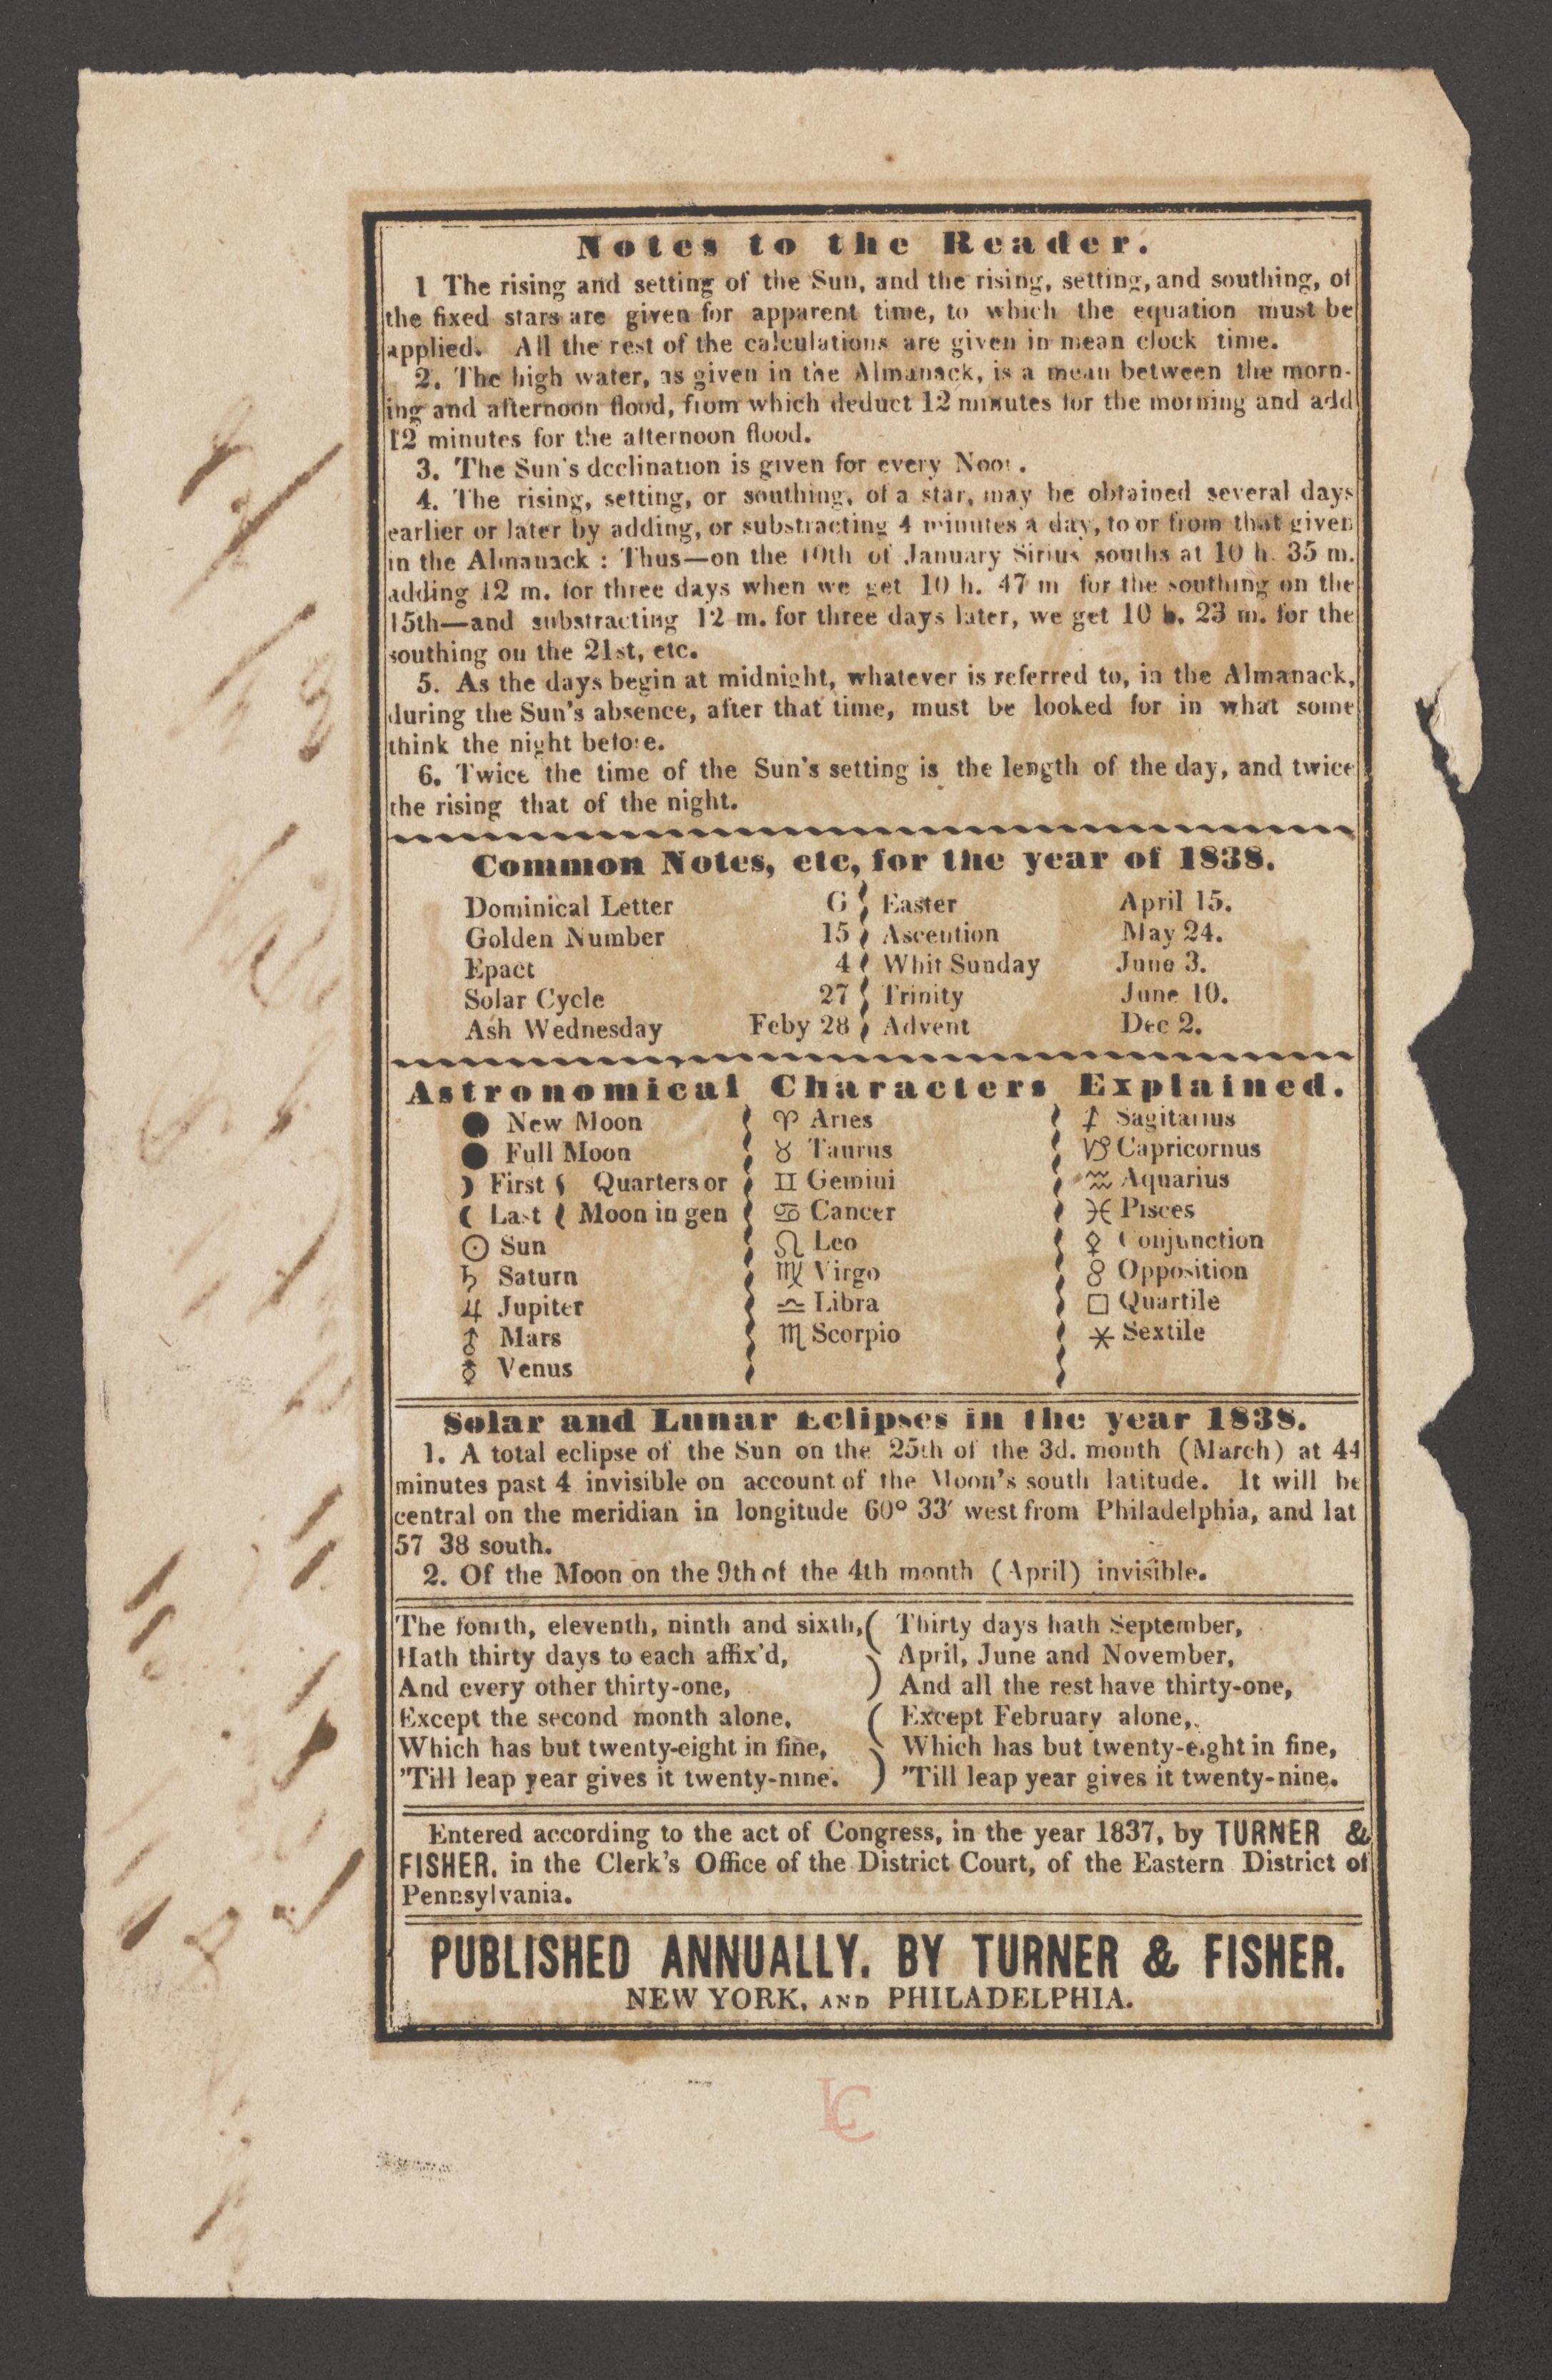 Notes to the Reader.
1 The rising and setting of the Sun, and the rising, setting, and southing, of
the fixed stars are given for apparent time, to which the equation must be
applied. All the rest of the calculations are given in mean clock time.
2. The high water, as given in the Almanack, is a mean between the morn-
ing and afternoon flood, from which deduct 12 minutes for the morning and add
12 minutes for the afternoon flood.
3. The Sun's declination is given for every Noon.
4. The rising, setting, or southing, of a star, may be obtained several days
earlier or later by adding, or substracting 4 minutes a day, to or from that given
in the Almanack : Thus—on the 10th of January Sirius souths at 10 h. 35 m.
adding 12 m. for three days when we get 10 h. 47 m for the southing on the
15th—and substracting 12 m. for three days later, we get 10 h. 23 m. for the
southing on the 21st, etc.
5. As the days begin at midnight, whatever is referred to, in the Almanack,
during the Sun's absence, after that time, must be looked for in what some
think the night before.
6. Twice the time of the Sun's setting is the length of the day, and twice
the rising that of the night.
Common Notes, etc, for the year of 1838.
Dominical Letter G Easter April 15.
Golden Number 15 Ascention May 24.
Epact 4 Whit Sunday June 3.
Solar Cycle 27 Trinity June 10.
Ash Wednesday Feby 28 Advent Dec 2.
Astronomical Characters Explained.
● New Moon ♈ Aries ♐ Sagitarius
● Full Moon ♉ Taurus ♑ Capricornus
☽ First Quarters or ♊ Gemini ♒ Aquarius
☾ Last Moon in gen ♋ Cancer ♓ Pisces
☉ Sun ♌ Leo ♀ Conjunction
♄ Saturn ♍ Virgo 8 Opposition
♃ Jupiter ♎ Libra □ Quartile
♂ Mars ♏ Scorpio ⚹ Sextile
♀ Venus
Solar and Lunar Eclipses in the year 1838.
1. A total eclipse of the Sun on the 25th of the 3d. month (March) at 44
minutes past 4 invisible on account of the Moon's south latitude. It will be
central on the meridian in longitude 60° 33′ west from Philadelphia, and lat
57 38 south.
2. Of the Moon on the 9th of the 4th month (April) invisible.
The fourth, eleventh, ninth and sixth, Thirty days hath September,
Hath thirty days to each affix'd, April, June and November,
And every other thirty-one, And all the rest have thirty-one,
Except the second month alone, Except February alone,
Which has but twenty-eight in fine, Which has but twenty-eight in fine,
'Till leap year gives it twenty-nine. 'Till leap year gives it twenty-nine.
Entered according to the act of Congress, in the year 1837, by TURNER &
FISHER, in the Clerk's Office of the District Court, of the Eastern District of
Pennsylvania.
PUBLISHED ANNUALLY, BY TURNER & FISHER.
NEW YORK, AND PHILADELPHIA.
LC